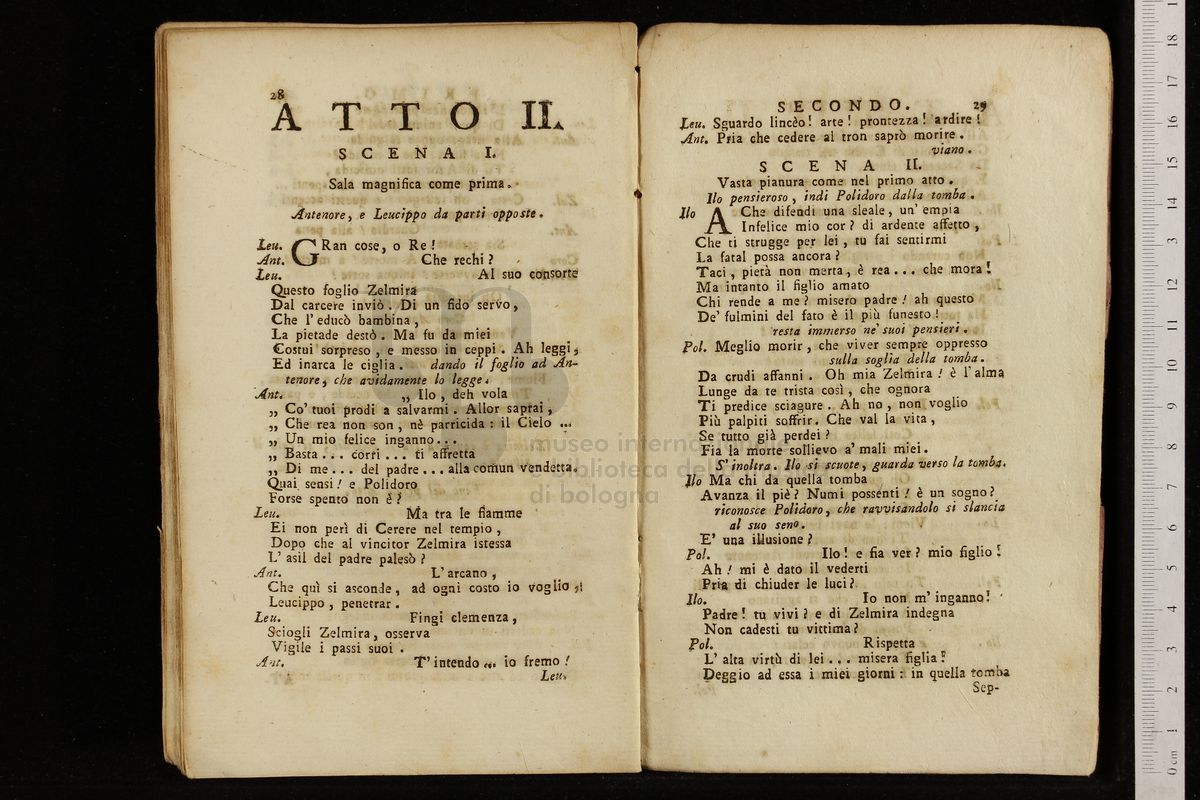 28
ATTO II.
SCENA I.
Sala magnifica come prima.
Antenore, e Leucippo da parti opposte.
Leu. GRan cose, o Re!
Ant. Che rechi?
Leu. Al suo consorte
Questo foglio Zelmira
Dal carcere inviò. Di un fido servo,
Che l'educò bambina,
La pietade destò. Ma fu da miei
Costui sorpreso, e messo in ceppi. Ah leggi,
Ed inarca le ciglia. dando il foglio ad An-
tenore, che avidamente lo legge.
Ant. „ Ilo, deh vola
„ Co' tuoi prodi a salvarmi. Allor saprai,
„ Che rea non son, nè parricida: il Cielo ...
„ Un mio felice inganno...
„ Basta... corri... ti affretta
„ Di me... del padre... alla comun vendetta.
Quai sensi! e Polidoro
Forse spento non è?
Leu. Ma tra le fiamme
Ei non perì di Cerere nel tempio,
Dopo che al vincitor Zelmira istessa
L'asil del padre palesò?
Ant. L'arcano,
Che quì si asconde, ad ogni costo io voglio,
Leucippo, penetrar.
Leu. Fingi clemenza,
Sciogli Zelmira, osserva
Vigile i passi suoi.
Ant. T'intendo... io fremo!
Leu.
SECONDO. 29
Leu. Sguardo lincèo! arte! prontezza! ardire!
Ant. Pria che cedere al tron saprò morire.
viano.
SCENA II.
Vasta pianura come nel primo atto.
Ilo pensieroso, indi Polidoro dalla tomba.
Ilo A Che difendi una sleale, un'empia
Infelice mio cor? di ardente affetto,
Che ti strugge per lei, tu fai sentirmi
La fatal possa ancora?
Taci, pietà non merta, è rea... che mora!
Ma intanto il figlio amato
Chi rende a me? misero padre! ah questo
De' fulmini del fato è il più funesto!
resta immerso ne' suoi pensieri.
Pol. Meglio morir, che viver sempre oppresso
sulla soglia della tomba.
Da crudi affanni. Oh mia Zelmira! è l'alma
Lunge da te trista così, che ognora
Ti predice sciagure. Ah no, non voglio
Più palpiti soffrir. Che val la vita,
Se tutto già perdei?
Fia la morte sollievo a' mali miei.
S'inoltra. Ilo si scuote, guarda verso la tomba.
Ilo Ma chi da quella tomba
Avanza il piè? Numi possenti! è un sogno?
riconosce Polidoro, che ravvisandolo si slancia
al suo seno.
E' una illusione?
Pol. Ilo! e fia ver? mio figlio!
Ah! mi è dato il vederti
Pria di chiuder le luci?
Ilo. Io non m'inganno!
Padre! tu vivi? e di Zelmira indegna
Non cadesti tu vittima?
Pol. Rispetta
L'alta virtù di lei... misera figlia!
Deggio ad essa i miei giorni: in quella tomba
Sep-
museo internazionale
e biblioteca della
di bologna
0 cm 1 2 3 4 5 6 7 8 9 10 11 12 13 14 15 16 17 18